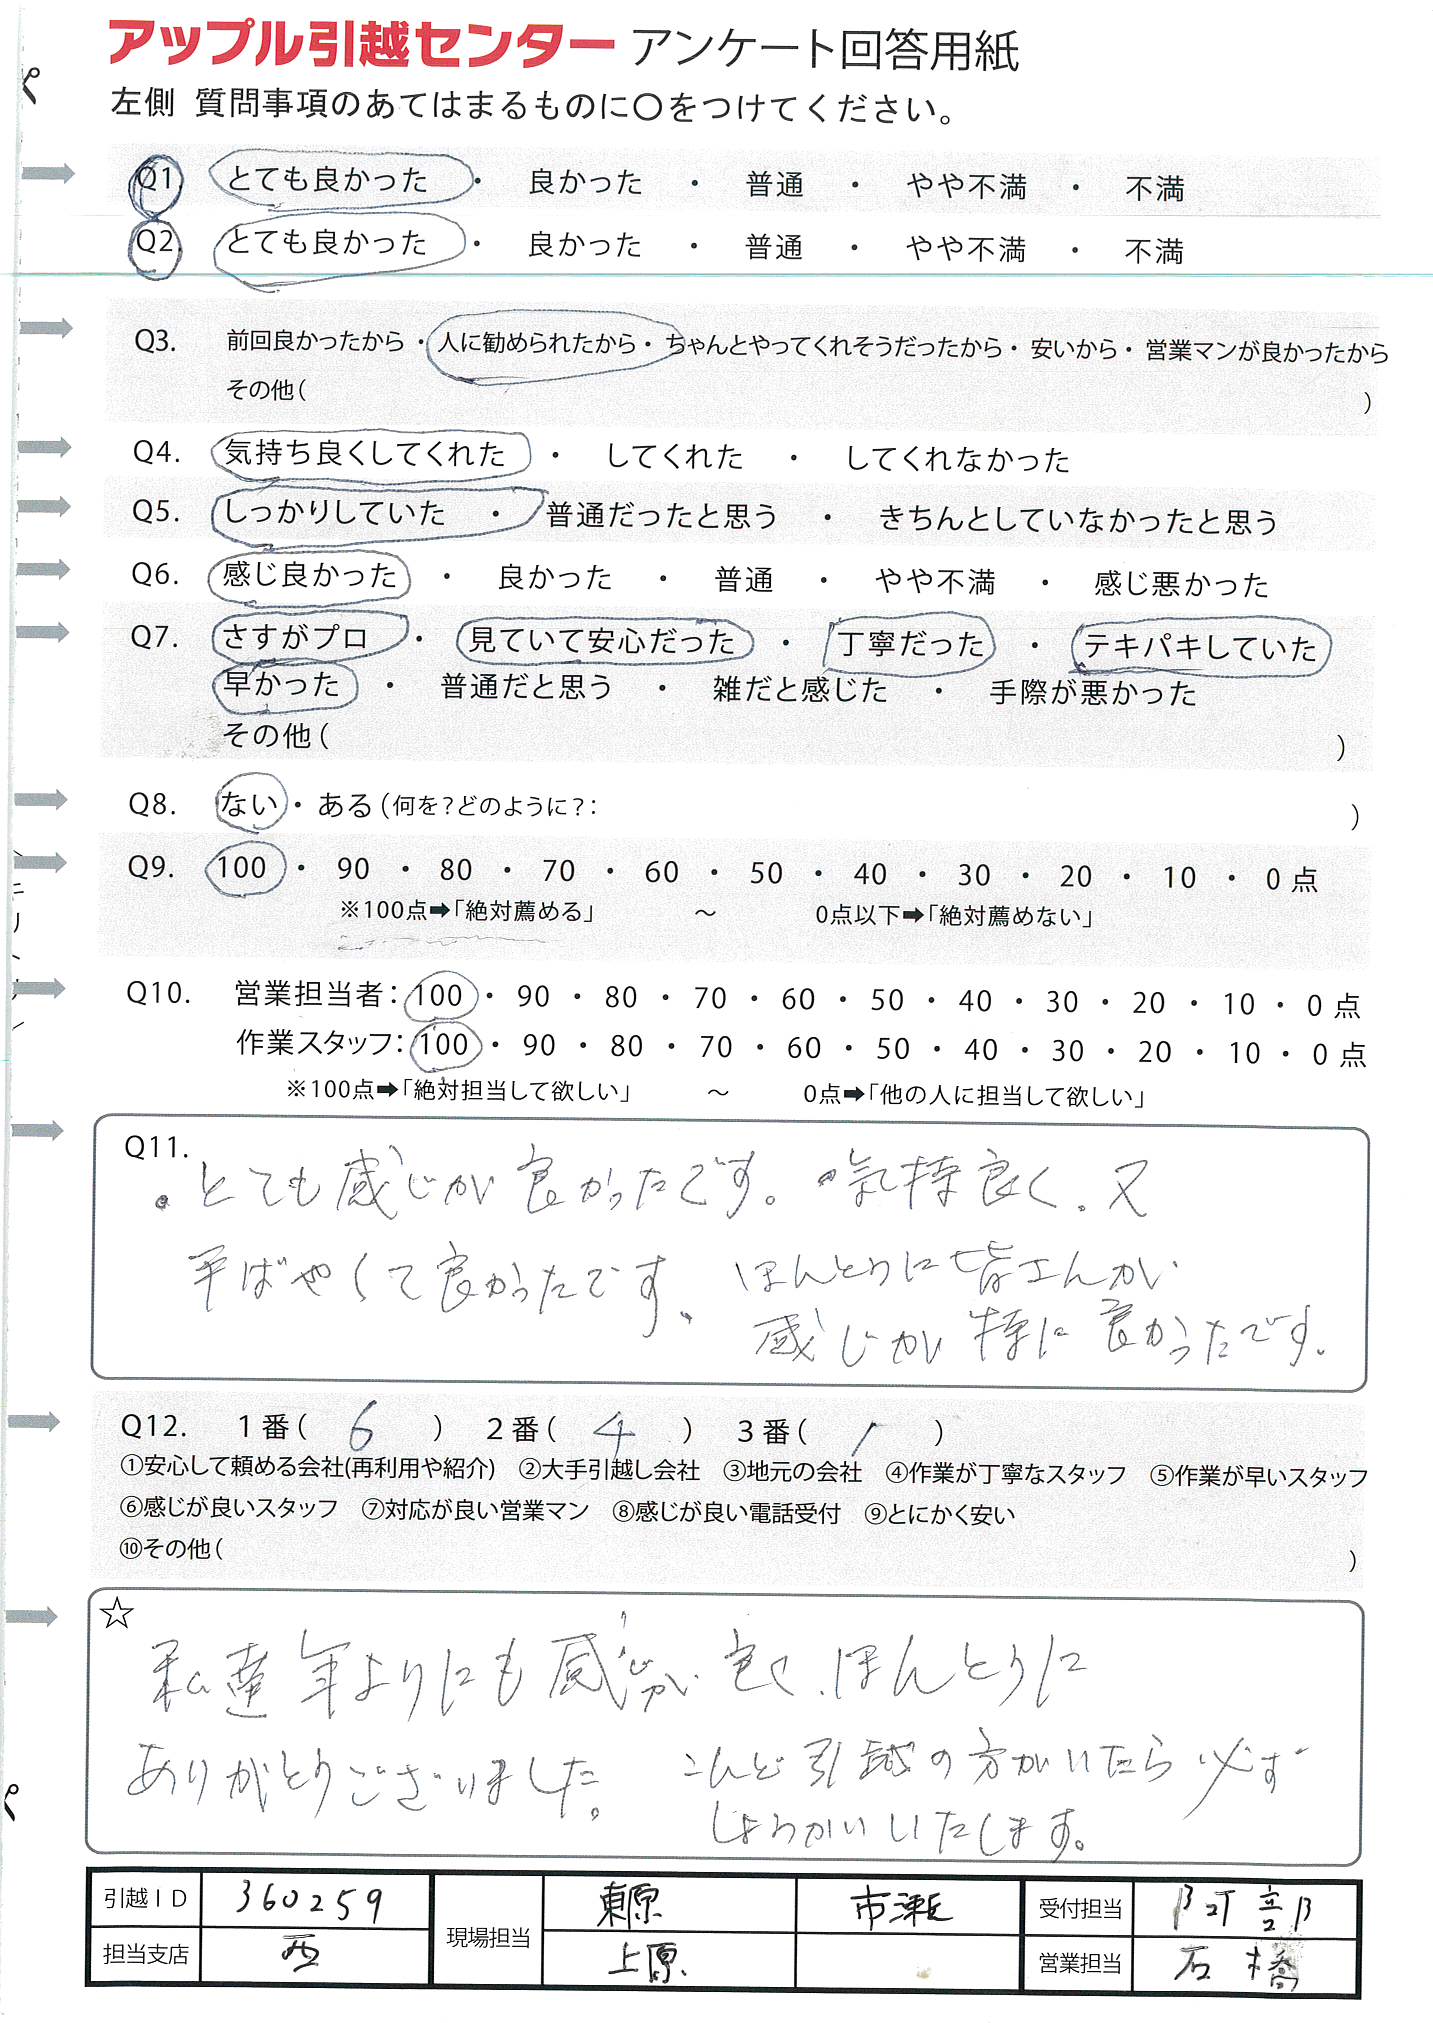 アップル引越センター アンケート回答用紙
左側 質問事項のあてはまるものに〇をつけてください。
Q1. とても良かった ・ 良かった ・ 普通 ・ やや不満 ・ 不満
Q2. とても良かった ・ 良かった ・ 普通 ・ やや不満 ・ 不満
Q3. 前回良かったから ・ 人に勧められたから ・ ちゃんとやってくれそうだったから ・ 安いから ・ 営業マンが良かったから
その他( )
Q4. 気持ち良くしてくれた ・ してくれた ・ してくれなかった
Q5. しっかりしていた ・ 普通だったと思う ・ きちんとしていなかったと思う
Q6. 感じ良かった ・ 良かった ・ 普通 ・ やや不満 ・ 感じ悪かった
Q7. さすがプロ ・ 見ていて安心だった ・ 丁寧だった ・ テキパキしていた
早かった ・ 普通だと思う ・ 雑だと感じた ・ 手際が悪かった
その他( )
Q8. ない ・ ある(何を?どのように?: )
Q9. 100 ・ 90 ・ 80 ・ 70 ・ 60 ・ 50 ・ 40 ・ 30 ・ 20 ・ 10 ・ 0 点
※100点➡「絶対薦める」 ～ 0点以下➡「絶対薦めない」
Q10. 営業担当者: 100 ・ 90 ・ 80 ・ 70 ・ 60 ・ 50 ・ 40 ・ 30 ・ 20 ・ 10 ・ 0 点
作業スタッフ: 100 ・ 90 ・ 80 ・ 70 ・ 60 ・ 50 ・ 40 ・ 30 ・ 20 ・ 10 ・ 0 点
※100点➡「絶対担当して欲しい」 ～ 0点➡「他の人に担当して欲しい」
Q11.
・とても感じが良かったです。・気持良く、又
手ばやくて良かったです。ほんとうに皆さんが
感じが特に良かったです。
Q12. 1番( 6 ) 2番( 4 ) 3番( 1 )
①安心して頼める会社(再利用や紹介) ②大手引越し会社 ③地元の会社 ④作業が丁寧なスタッフ ⑤作業が早いスタッフ
⑥感じが良いスタッフ ⑦対応が良い営業マン ⑧感じが良い電話受付 ⑨とにかく安い
⑩その他( )
☆
私達年よりにも感じが良く、ほんとうに
ありがとうございました。こんど引越の方がいたら必ず
しょうかいいたします。
引越ID 360259 現場担当 東原 市瀬 受付担当 阿部
担当支店 西 上原 営業担当 石橋